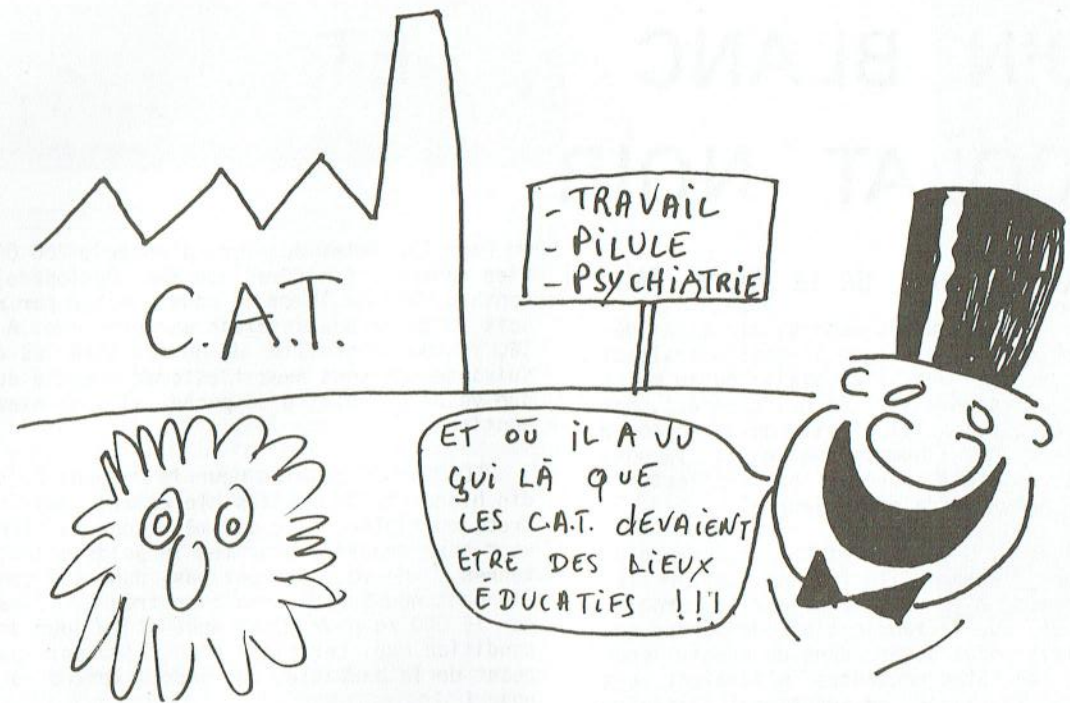 C.A.T.
- TRAVAIL
- PILULE
- PSYCHIATRIE
ET OÙ IL A VU
QUI LÀ QUE
LES C.A.T. dEVAIENT
ETRE DES LIEUX
EDUCATIFS !!!